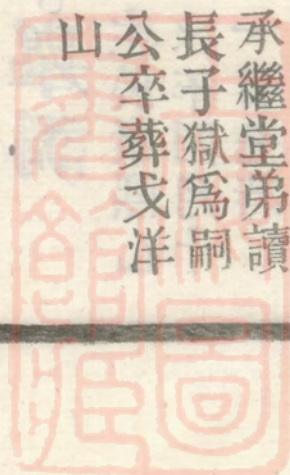 承繼堂弟讀
長子獄爲嗣
公卒葬戈洋
山